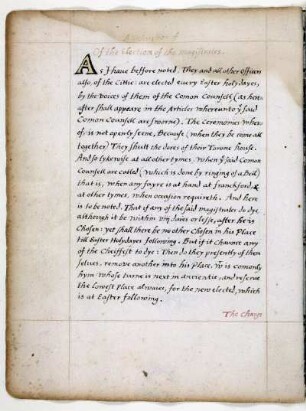 Of the Election of the magistrates.
As I have beffore noted. They and all other officers
also, of the Cittie: are elected every Easter holy dayes,
by the voices of them of the Comon Counsell (as here-
after shall appeare in the Articles whereunto ye said
Comon Counsell are sworne). The Ceremonies wher
of: is not openly sene, Becauſe, when they be come all
together) They shutt the dores of their Towne house.
And so lykewise at all other tymes, when ye said Comon
Counsell are called (which is done by ringing of a Bell,
that is, when any fayre is at hand at franckford &
at other tymes, when occasion requireth. And here
is to be noted. That yf any of the said magistrates do dye
although it be within viij daies or lesse, after he is
Chosen: yet shall there be no other Chosen in his Place
till Easter Holydaies following. But if it chaunce any
of the Cheiffest to dye: Then do they presently of them
selves, remove another into his Place, wch is comonly
hym whose turne is next in auncientie, and reserve
the lowest Place alwaies, for the new elected, which
is at Easter following.
The Charge